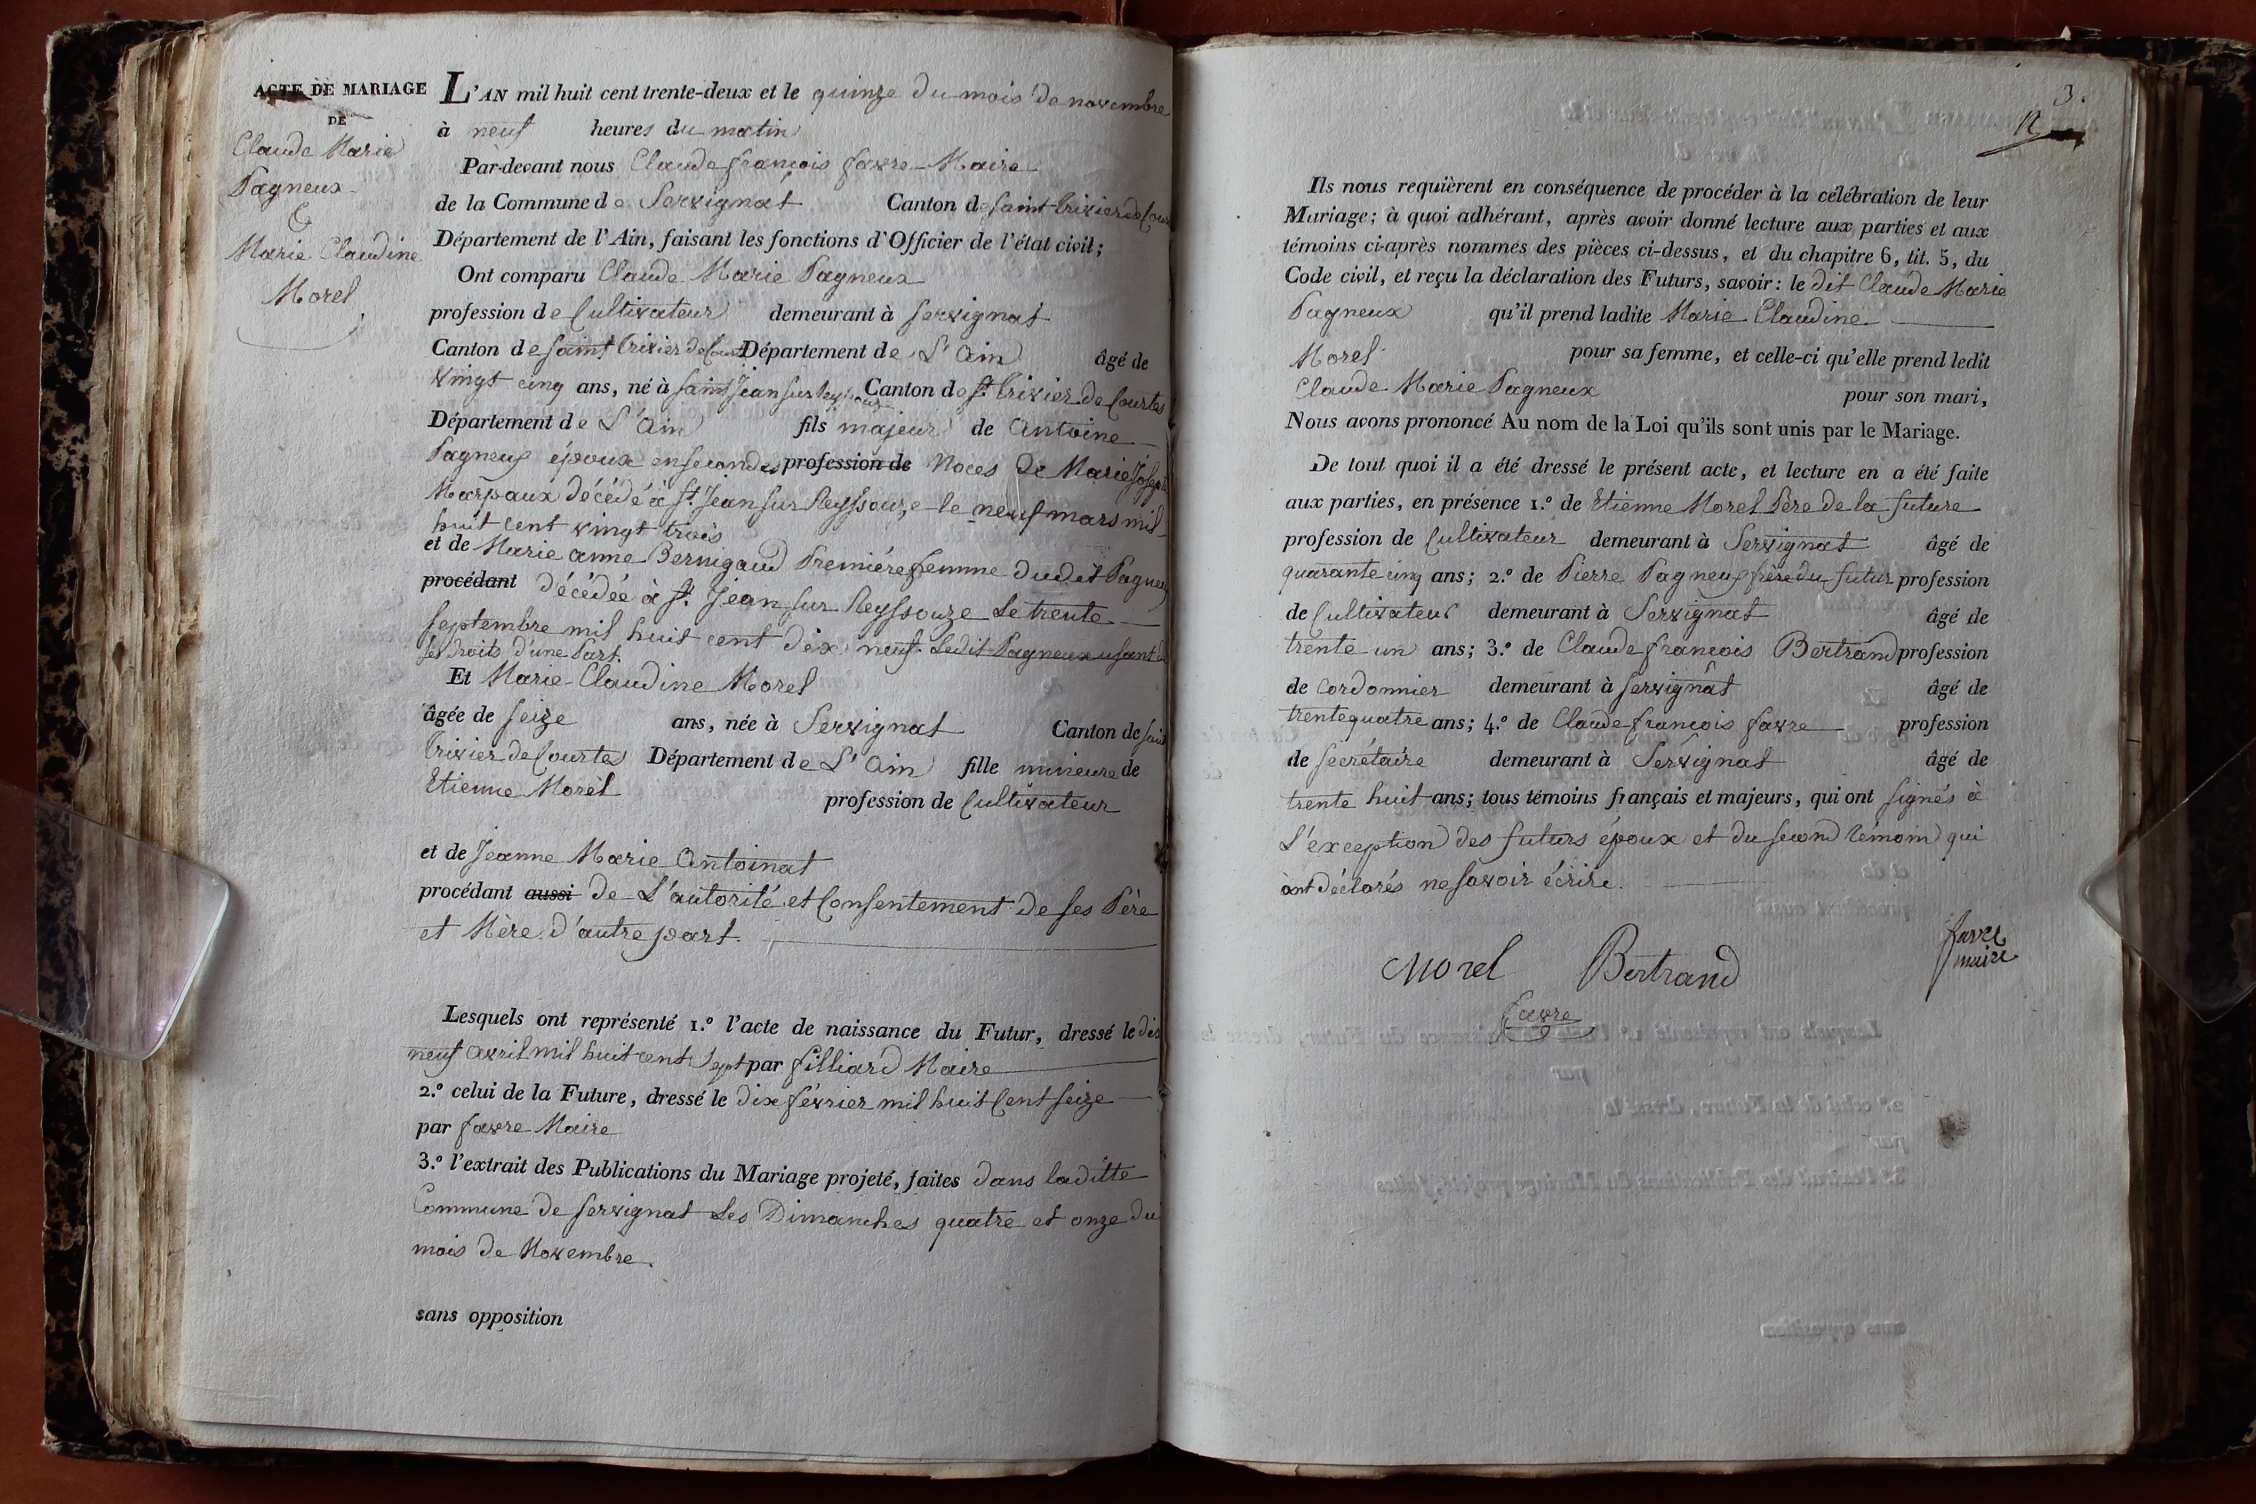 ACTE DE MARIAGE
DE
Claude Marie
Pagneux
&
Marie Claudine
Morel
L'AN mil huit cent trente-deux et le quinze du mois de novembre
à neuf heures du matin
Par-devant nous Claude françois favre Maire
de la Commune de Servignat Canton de saint Trivier de Cour
Département de l'Ain, faisant les fonctions d'Officier de l'état civil;
Ont comparu Claude Marie Pagneux
profession de Cultivateur demeurant à servignat
Canton de saint Trivier de Court Département de L'Ain âgé de
vingt cinq ans, né à saint Jean sur Reyssouze Canton de st Trivier de Courtes
Département de L'Ain fils majeur de Antoine
Pagneux époux en secondes profession de Noces de Marie Joseph
Marpaux décédé à St. Jean sur Reyssouze le neuf mars mil
huit cent vingt trois
et de Marie anne Bernigaud Première femme dudit Pagneux
procédant décédée à St. Jean sur Reyssouze Le trente
septembre mil huit cent dix neuf. Ledit Pagneux usant de
ses Droits d'une Part.
Et Marie Claudine Morel
âgée de seize ans, née à Servignat Canton de saint
Trivier de Courtes Département de L'Ain fille mineure de
Etienne Morel profession de Cultivateur
et de Jeanne Marie Antoinat
procédant aussi de L'autorité et Consentement de ses Père
et Mère d'autre part.
Lesquels ont représenté 1.º l'acte de naissance du Futur, dressé le dix
neuf avril mil huit cent sept par filliard Maire
2.º celui de la Future, dressé le dix février mil huit Cent seize
par favre Maire
3.º l'extrait des Publications du Mariage projeté, faites dans laditte
Commune de servignat Les Dimanches quatre et onze du
mois de Novembre.
sans opposition
3.
12
Ils nous requièrent en conséquence de procéder à la célébration de leur
Mariage; à quoi adhérant, après avoir donné lecture aux parties et aux
témoins ci-après nommés des pièces ci-dessus, et du chapitre 6, tit. 5, du
Code civil, et reçu la déclaration des Futurs, savoir: le dit Claude Marie
Pagneux qu'il prend ladite Marie Claudine
Morel pour sa femme, et celle-ci qu'elle prend ledit
Claude Marie Pagneux pour son mari,
Nous avons prononcé Au nom de la Loi qu'ils sont unis par le Mariage.
De tout quoi il a été dressé le présent acte, et lecture en a été faite
aux parties, en présence 1.º de Etienne Morel Père de la future
profession de Cultivateur demeurant à Servignat âgé de
quarante cinq ans; 2.º de Pierre Pagneux frère du futur profession
de Cultivateur demeurant à Servignat âgé de
trente un ans; 3.º de Claude françois Bertrand profession
de Cordonnier demeurant à servignat âgé de
trente quatre ans; 4.º de Claude françois favre profession
de secrétaire demeurant à Servignat âgé de
trente huit ans; tous témoins français et majeurs, qui ont signés à
L'exception des futurs époux et du second témoin qui
ont déclarés ne savoir écrire.
Morel Bertrand
favre
maire
favre